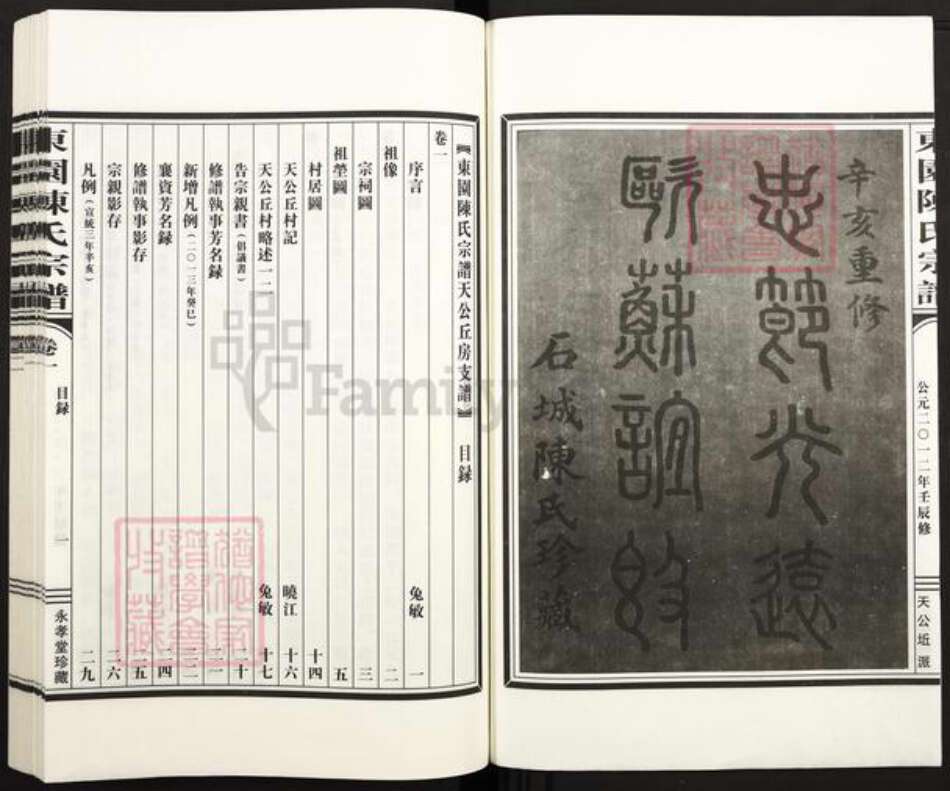 東園陳氏宗譜
公元二〇一二年壬辰修
天公坵派
辛亥重修
忠節光遠
歐蘇誼敦
石城陳氏珍藏
《東園陳氏宗譜天公丘房支譜》目録
卷一
序言 兔敏 一
祖像 二
宗祠圖 三
祖塋圖 五
村居圖 十四
天公丘村記 曉江 十六
天公丘村略述一二 兔敏 十七
告宗親書（倡議書） 二十
修譜執事芳名録 二一
新增凡例（二〇一三年癸巳） 二二
襄資芳名録 二四
修譜執事影存 二五
宗親影存 二六
凡例（宣統三年辛亥） 二九
東園陳氏宗譜
卷一
目録
一
永孝堂珍藏
Family